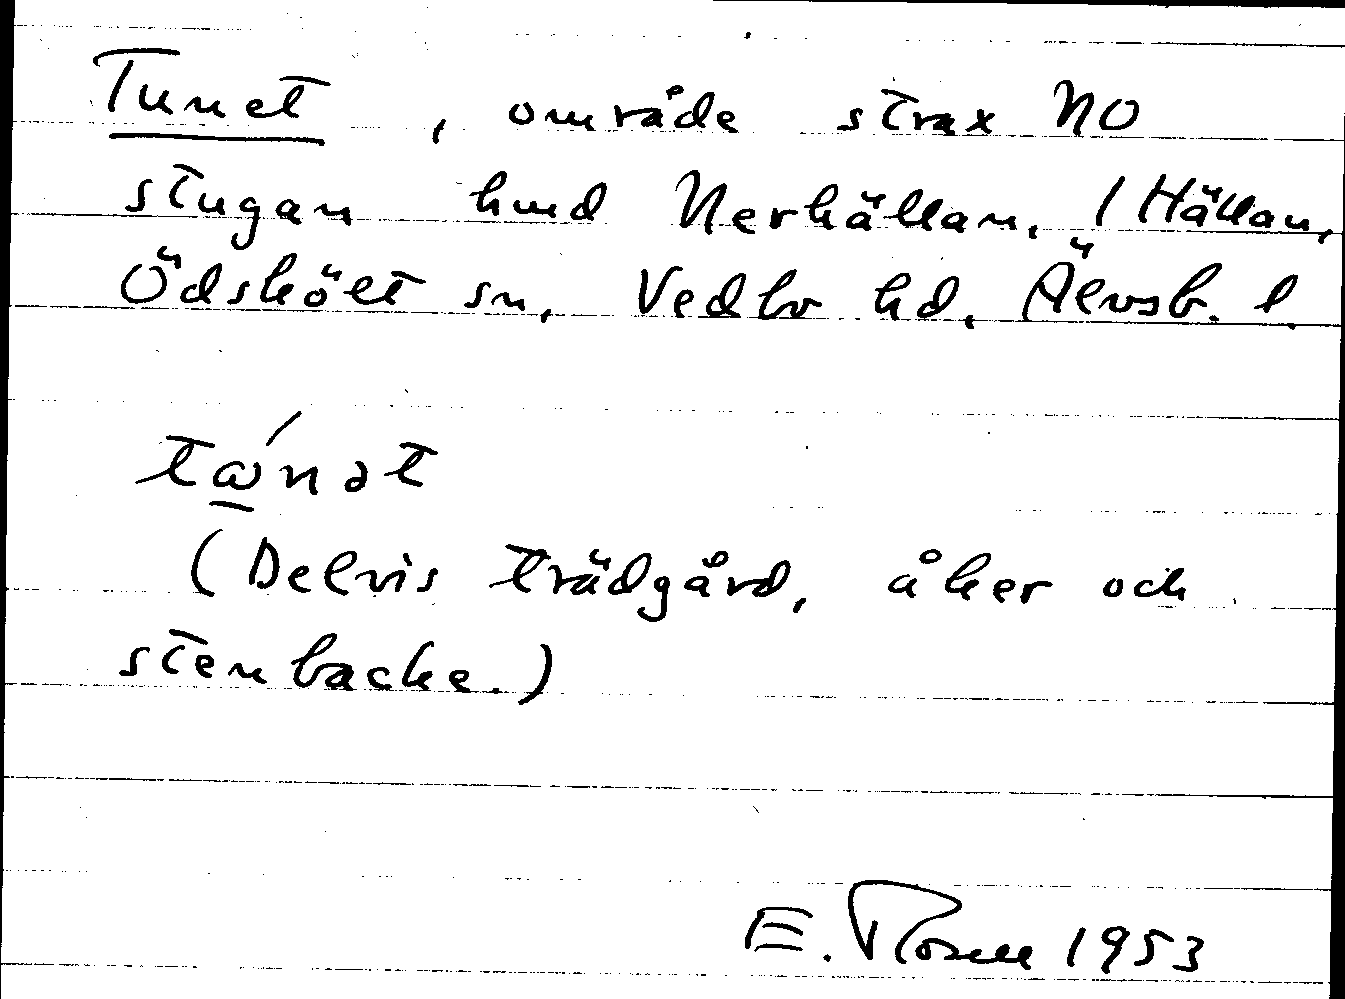 Tunet, område strax NO
stugan hmd Nerhällan, 1 Hällan,
Ödskölt sn, Vedbo hd, Älvsb. l.
tώ̲nət
(Delvis trädgård, åker och
stenbacke.)
E. Rosell 1953